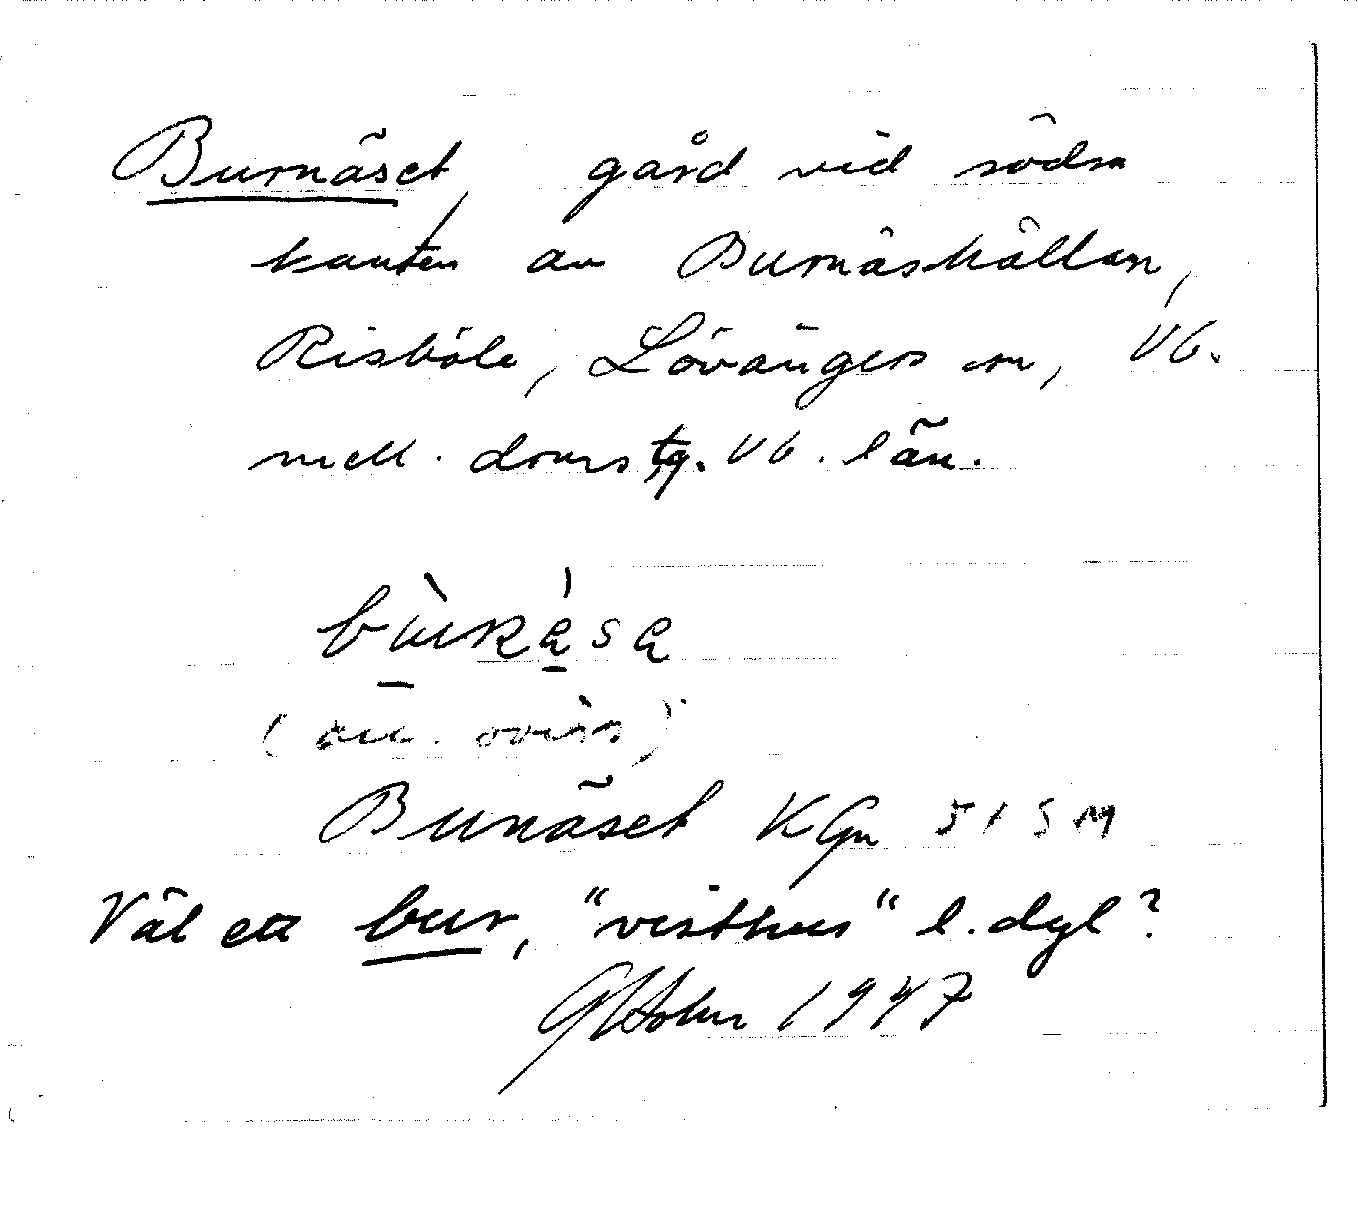 Burnäset, gård vid södra
kanten av Burnäskällan,
Risböle, Lövångers sn, Vb.
mell. domstg. Vb. län.
(acc. oviss)
Bunäset KGn 515M
Väl ett bur, "visthus" l. dyl?
GHolm 1947